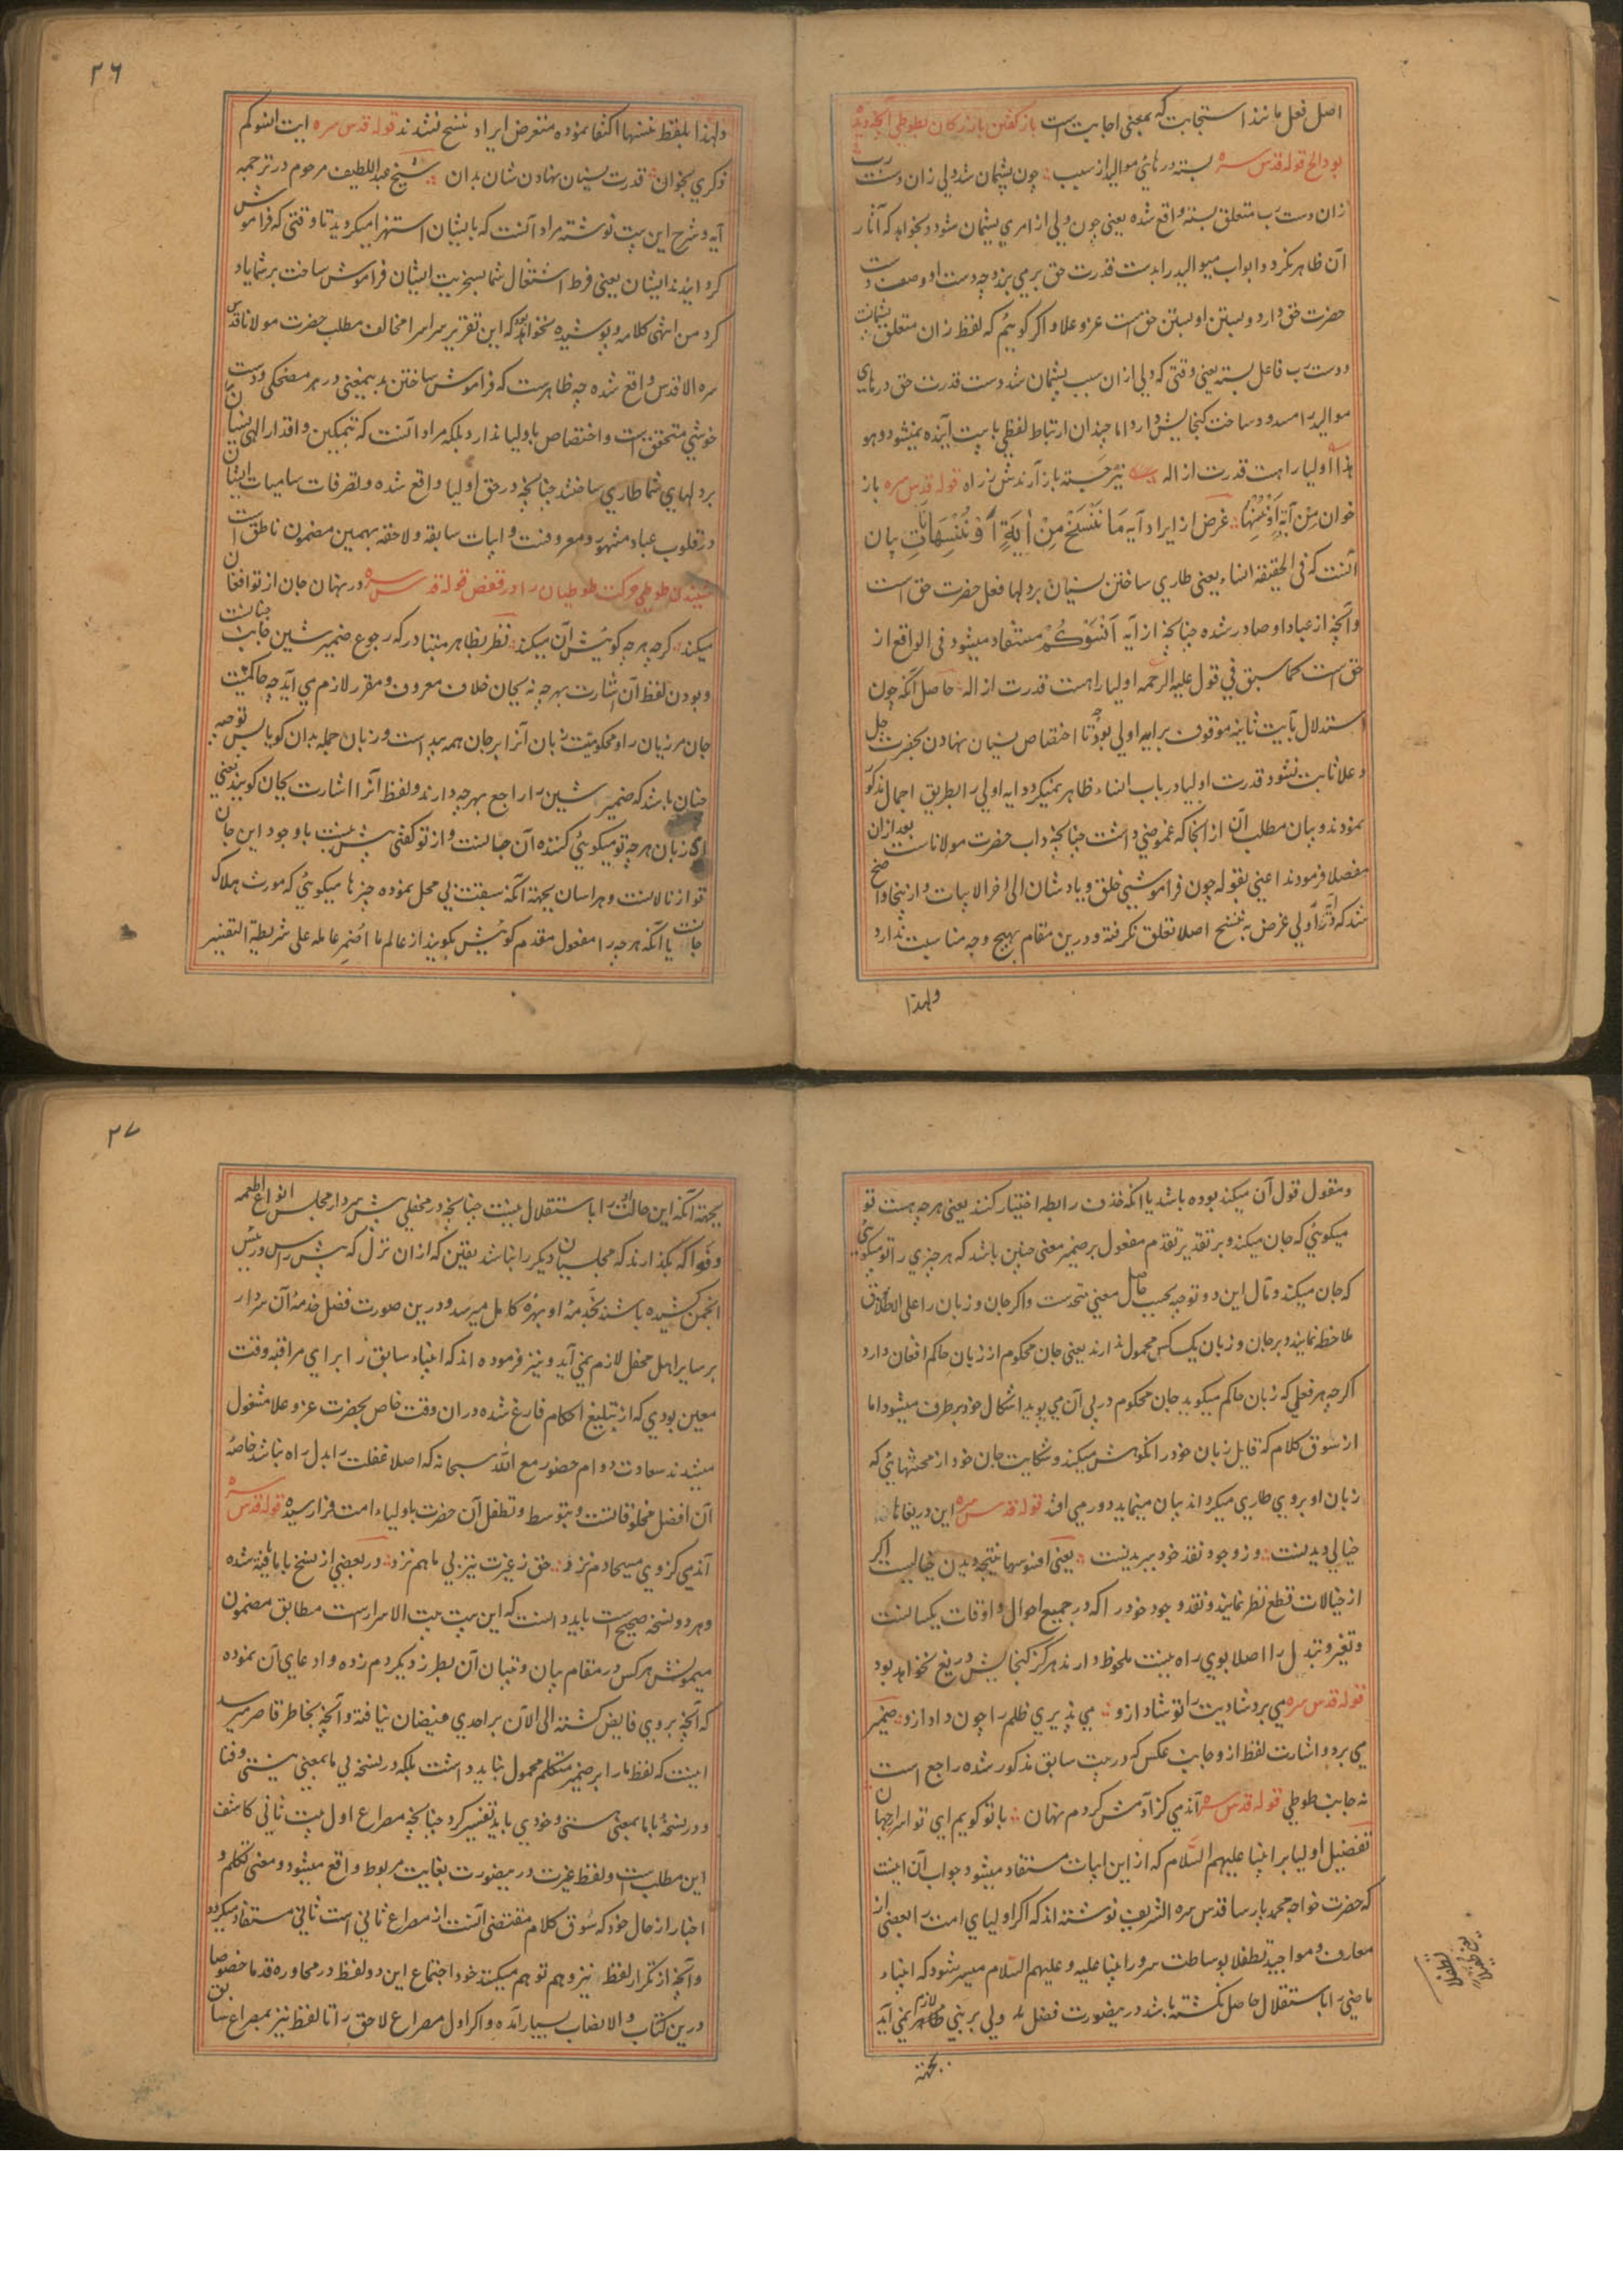 اصل فعل مانند استجابت که بمعنی اجابت است باز گفتن بازرگان بطوطی آنچه دیده
بود الخ قوله قدس سره بسته درهای موالید از سبب چون پشیمان شد ولی زان دست رب
زان دست رب متعلق بسته واقع شده یعنی چون ولی از امری پشیمان شود و بخواهد که آثار
آن ظاهر نکردد ابواب موالید را بدست قدرت حق برمی بندد چه دست او وصف دست
حضرت حق دارد و بستن او بستن حق است عز و علا و اکر کوییم که لفظ زان متعلق پشیمانست
و دست رب فاعل بسته یعنی وقتی که ولی ازان سبب پشیمان شد دست قدرت حق درهای
موالید را مسدود ساخت کنجایش دارد اما چندان ارتباط لفظی با بیت آینده نمیشود و هو
هذا اولیا را هست قدرت از اله تیر جسته باز آرندش ز راه قوله قدس سره باز
خوان من آیة او ننسها غرض از ایراد آیه مَا نَنْسَخْ مِنْ اٰیَةٍ اَوْ نُنْسِهَا نَاتِ بیان
آنست که فی الحقیقه انساء یعنی طاری ساختن نسیان بر دلها فعل حضرت حق است
و آنچه از عباد او صادر شده چنانچه از آیه اَنْسَوْکُمْ مستفاد میشود فی الواقع از
حق است کما سبق فی قول علیه الرحمه اولیا را هست قدرت از اله حاصل آنکه چون
استدلال بآیت ثانیه موقوف بر آیه اولی بود تا اختصاص نسیان نهادن بحضرت جل
و علا ثابت نشود قدرت اولیا در باب انساء ظاهر نمیکردد آیه اولی را بطریق اجمال مذکور
نمودند و بیان مطلب آن از آنجا که غموضی داشت چنانچه داب حضرت مولاناست بعد ازان
مفصلا فرمودند اعنی بقوله چون فراموشی خلق و یادشان الی اخر الابیات و ازینجا واضح
شد که در آیه اولی غرض به ننسخ اصلا تعلق نکرفته و درین مقام بهیچ وجه مناسبت ندارد
ولهذا
۲۶
ولهذا بلفظ ننسها اکتفا نموده متعرض ایراد ننسخ نشدند قوله قدس سره آیت انسوکم
ذکری بخوان قدرت نسیان نهادن شان بدان شیخ عبد اللطیف مرحوم در ترجمه
آیه و شرح این بیت نوشته مراد آنست که بایشان استهزا میکردید تا وقتی که فراموش
کردانیدند ایشان یعنی فرط اشتغال شما بسخریت ایشان فراموش ساخت بر شما یاد
کردن من انتهی کلامه و پوشیده نخواهد بود که این تقریر سراسر مخالف مطلب حضرت مولانا قدس
سره الاقدس واقع شده چه ظاهرست که فراموش ساختن بدینمعنی در هر مضحکی و دست
خوشی متحقق است و اختصاص باولیا ندارد بلکه مراد آنست که بتمکین و اقدار الهی نسیان
بر دلهای شما طاری ساختند چنانچه در حق اولیا واقع شده و تصرفات سامیات ایشان
در قلوب عباد مشهور و معروفست و ابیات سابقه و لاحقه بهمین مضمون ناطق است
شنیدن طوطی حرکت طوطیان را در قفص قوله قدس سره در نهان جان از تو افغان
میکند گرچه هرچه گوئیش آن میکند نظر بظاهر متبادر که رجوع ضمیر شین جانب جانست
و بودن لفظ آن اشارت بهرچه نه بجان خلاف معروف و مقرر لازم می آید چه حاکمیت
جان مر زبان را و محکومیت زبان آنرا بر جان همه پیداست و زبان جمله بدان کویا پس توجیه
چنان باشد که ضمیر شین را راجع بهرچه دارند و لفظ آنرا اشارت بجان کویند یعنی
ای زبان هرچه تو میکوئی کننده آن جانست و از تو کفتی بیش نیست با وجود این جان
تو از نالانست و هراسان بجهة آنکه سبقت بی محل نموده چیزها میکوئی که مورث هلاک
جانست یا آنکه هرچه را مفعول مقدم کوئیش بکویند از عالم ما اُضمِر عامله علی شریطة التفسیر
و مقول قول آن میکند بوده باشد یا آنکه حذف رابطه اختیار کنند یعنی هرچه هست تو
میکوئی که جان میکند و بر تقدیر تقدم مفعول بر ضمیر معنی چنین باشد که هر چیزی را تو میکوئی
که جان میکند و مآل این دو توجیه بحسب حاصل معنی متحدست و اکر جان و زبان را علی الاطلاق
ملاحظه نمایند و بر جان و زبان یک کس محمول ندارند یعنی جان محکوم از زبان حاکم افغان دارد
اکرچه هر فعلی که زبان حاکم میکوید جان محکوم در پی آن می پوید اشکال خود برطرف میشود اما
از سَوق کلام که قایل زبان خود را نکوهش میکند و شکایت جان خود از محنتهائی که
زبان او بروی طاری میکرداند بیان مینماید دور می افتد قوله قدس سره این دریغاها
خیالی دیدنست وز وجود نقد خود ببریدنست یعنی افسوسها نتیجه دیدن خیالیست اکر
از خیالات قطع نظر نمایند و نقد وجود خود را که در جمیع احوال و اوقات یکسانست
و تغیر و تبدل را اصلا بوی راه نیست ملحوظ دارند هرکز کنجایش دریغ نخواهد بود
قوله قدس سره می برد شادیت را تو شاد ازو می پذیری ظلم را چون داد ازو ضمیر
می برد و اشارت لفظ ازو جانب عکس که در بیت سابق مذکور شده راجع است
نه جانب طوطی قوله قدس سره آندمی کز آدمش کردم نهان با تو کویم ای تو اسرار جهان
تفضیل اولیا بر انبیا علیهم السلام که ازین ابیات مستفاد میشود جواب آن اینست
که حضرت خواجه محمد پارسا قدس سره الشریف نوشته اند که اکر اولیای امت را بعضی از
معارف و مواجید تطفلا بوساطت سرور انبیا علیه و علیهم السلام میسر شود که انبیاء
ماضی را باستقلال حاصل نکشته باشد درینصورت فضل ولی بر نبی لازم نمی آید
بجهة
۲۷
بجهة آنکه این حالت او را باستقلال نیست چنانچه در محفلی پیش سردار مجلس انواع اطعمه
و فواکه بکذارند که مجلسیان دیکر را نباشد یقین که ازان نُزل که پیش رأس و رئیس
انجمن کشیده باشند بخَدَمهٔ او بهره کامل میرسد و درین صورت فضل خدمهٔ آن سردار
بر سایر اهل محفل لازم نمی آید و نیز فرموده اند که انبیاء سابق را برای مراقبه وقت
معین بودی که از تبلیغ احکام فارغ شده دران وقت خاص بحضرت عز و علا مشغول
میشدند سعادت دوام حضور مع الله سبحانه که اصلا غفلت را بدل راه نباشد خاصهٔ
آن افضل مخلوقاتست و بتوسط و تطفل آن حضرت باولیاء امت فرا رسیده قوله قدس سره
آندمی کز وی مسیحا دم نزد حق ز غیرت نیز بی ما هم نزد در بعضی از نسخ با ما یافته شده
و هر دو نسخه صحیح است باید دانست که این بیت بیت الاسرارست مطابق مضمون
میمونش هرکس در مقام بیان و تبیان آن بطرز دیکر دم زده و ادعای آن نموده
که آنچه بروی فایض کشته الی الآن بر احدی فیضان نیافته و آنچه بخاطر قاصر میرسد
اینست که لفظ ما را بر ضمیر متکلم محمول نباید داشت بلکه در نسخه بی ما بمعنی نیستی و فنا
و در نسخهٔ با ما بمعنی هستی و خودی باید تفسیر کرد چنانچه مصراع اول بیت ثانی کاشف
این مطلب است و لفظ غیرت درینصورت بغایت مربوط واقع میشود و معنی تکلم و
اخبار از حال خود که سَوق کلام مقتضی آنست از مصراع ثانی است ثانی مستفاد میکردد
و آنچه از تکرار لفظ نیز و هم توهم میکنند خود اجتماع این دو لفظ در محاوره قدما خصوصا
درین کتاب والانصاب بسیار آمده و اکر اول مصراع لاحق را تا لفظ نیز بمصراع سابق